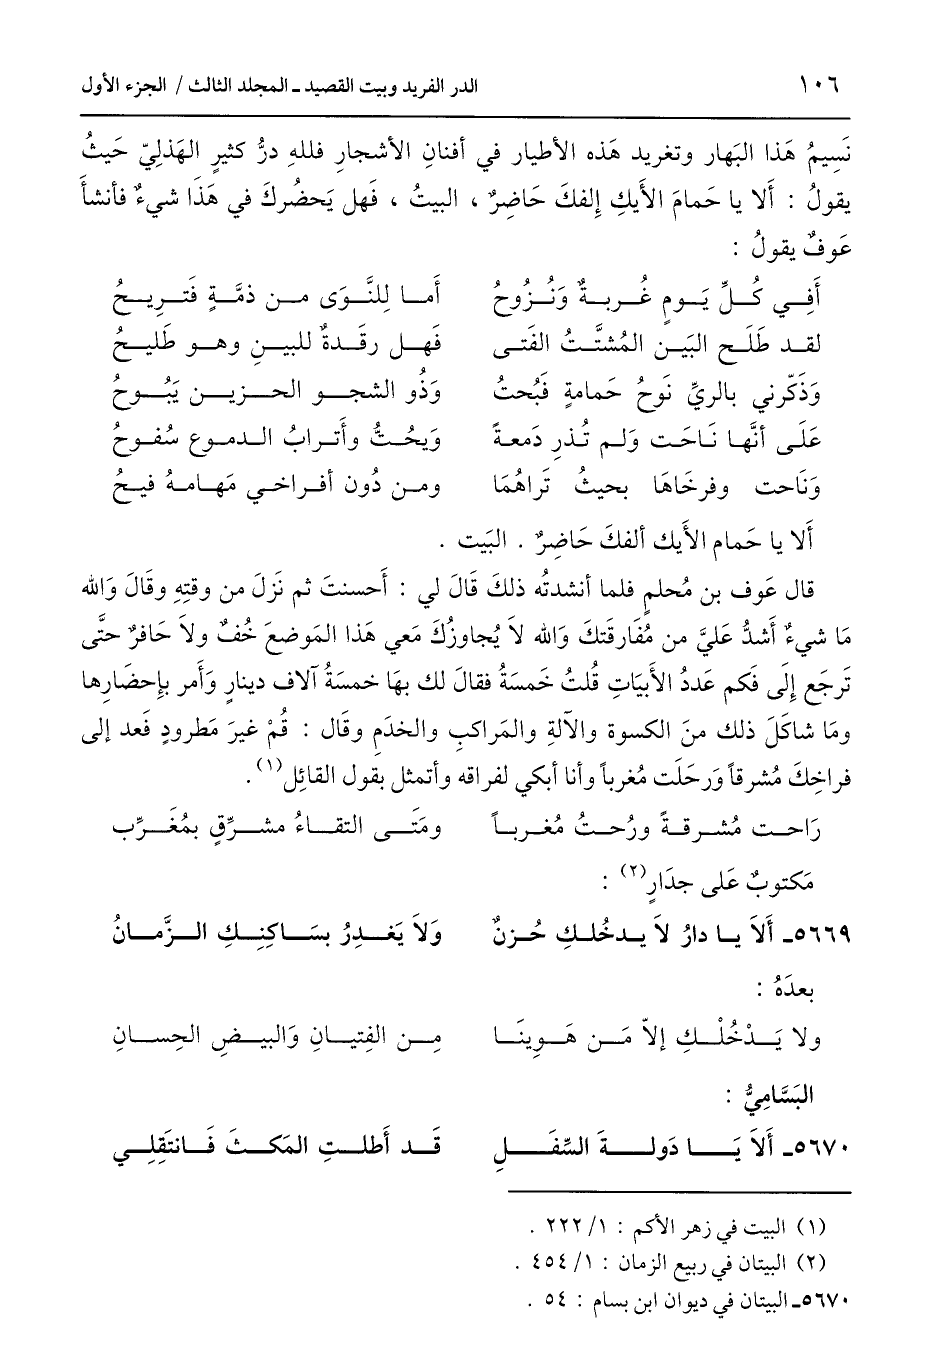 ١٠٦ الدر الفريد وبيت القصيد ـ المجلد الثالث / الجزء الأول
نَسِيمُ هَذا البَهار وتغريد هَذه الأطيار في أفنانِ الأشجارِ فللهِ درُّ كثيرِ الهَذليّ حَيثُ
يقولُ : ألا يا حَمامَ الأيكِ إلفكَ حَاضِرٌ ، البيتُ ، فَهل يَحضُركَ في هَذَا شيءٌ فأنشأَ
عَوفٌ يقولُ :
أَفِي كُلِّ يَومٍ غُربةٌ ونُزوحُ أَما لِلنَّوَى مِن ذمَّةٍ فَتريحُ
لقد طَلَح البَين المُشتَّتُ الفتَى فَهل رقدةٌ للبينِ وهو طَليحُ
وَذَكّرني بالريِّ نَوحُ حَمامةٍ فَبُحتُ وَذُو الشجوِ الحزينِ يَبُوحُ
عَلَى أنَّها نَاحَت ولم تُذرِ دَمعةً وَبحْتُ وأترابُ الدموعِ سُفوحُ
وَنَاحت وفرخَاهَا بحيثُ تَراهُمَا ومن دُون أفراخي مَهامهُ فيحُ
أَلا يا حَمام الأَيك ألفكَ حَاضِرٌ . البَيت .
قال عَوف بن مُحلمٍ فلما أنشدتُه ذلكَ قَالَ لي : أَحسنتَ ثم نَزلَ من وقتِهِ وقَالَ وَالله
مَا شيءٌ أَشدُّ عَليَّ من مُفَارقتكَ وَالله لاَ يُجاوزُكَ مَعي هَذا المَوضعَ خُفٌ ولاَ حَافرٌ حتَّى
تَرجَع إلَى فَكم عَددُ الأبيَاتِ قُلتُ خَمسَةُ فقالَ لك بهَا خمسَةُ آلاف دينارٍ وَأمر بإحضَارها
ومَا شاكَلَ ذلك منَ الكسوة والآلةِ والمَراكبِ والخدَمِ وقال : قُمْ غيرَ مَطرودٍ فَعد إلى
فراخِكَ مُشرقاً وَرحَلَت مُغرباً وأنا أبكي لفراقه وأتمثل بقول القائِل(١).
رَاحت مُشرقةً ورُحتُ مُغرباً ومَتَى التقاءُ مشرِّقٍ بمُغَرِّب
مَكتوبٌ عَلى جدَارٍ(٢) :
٥٦٦٩ـ أَلاَ يا دارُ لاَ يدخُلكِ حُزنٌ وَلاَ يَغدِرُ بسَاكِنِكِ الزَّمانُ
بعدَهُ :
ولا يَدْخُلْكِ إلاّ مَن هَوينَا مِن الفتيَانِ وَالبيضِ الحِسانِ
البَسَّامِيُّ :
٥٦٧٠ـ أَلاَ يَا دَولةَ السِّفَلِ قَد أَطلتِ المَكثَ فَانتَقِلِي
(١) البيت في زهر الأكم : ١ / ٢٢٢ .
(٢) البيتان في ربيع الزمان : ١ / ٤٥٤ .
٥٦٧٠ـ البيتان في ديوان ابن بسام : ٥٤ .